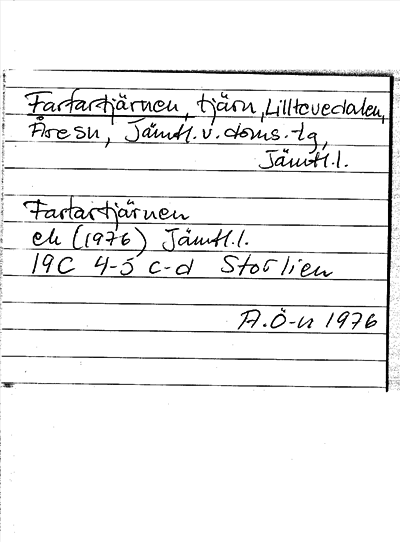 Farfartjärnen, tjärn, Lilltevedalen,
Åre sn, Jämtl.v.doms.-lg,
Jämtl.l.
Farfartjärnen
ek (1976) Jämtl.l.
19C 4-5 c-d Storlien
A.Ö-n 1976